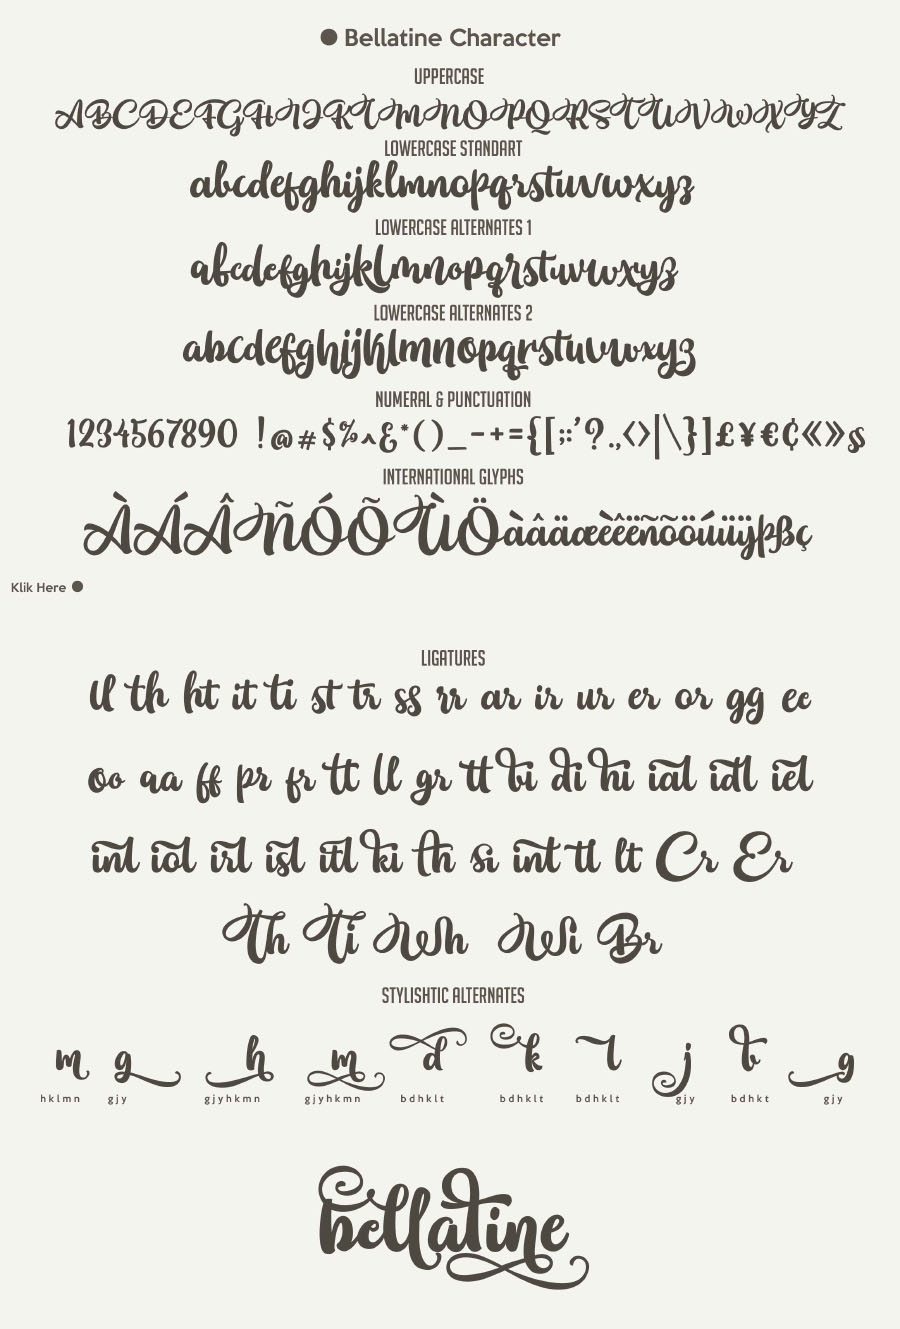 Bellatine Character
UPPERCASE
ABCDEFGHIJKLMNOPQRSTUVWXYZ
LOWERCASE STANDART
abcdefghijklmnopqrstuvwxyz
LOWERCASE ALTERNATES 1
abcdefghijklmnopqrstuvwxyz
LOWERCASE ALTERNATES 2
abcdefghijklmnopqrstuvwxyz
NUMERAL & PUNCTUATION
1234567890 !@#$%^&*()_-+={[;:'?.,<>|\}]£¥€¢«»s
INTERNATIONAL GLYPHS
ÀÁÂÑÓÕÙÖàâäæèêëñõöúüÿþßç
Klik Here
LIGATURES
th ht it ti st tr ss rr ar ir ur er or gg ee
oo aa ff pr fr tt ll gr tt bi di hi ial idl iel
inl iol irl isl itl ki th si int tl lt Cr Er
Th Ti Wh Wi Br
STYLISHTIC ALTERNATES
m g h m d k l j b g
hklmn gjy gjyhkmn gjyhkmn bdhklt bdhklt bdhklt gjy bdhkt gjy
bellatine